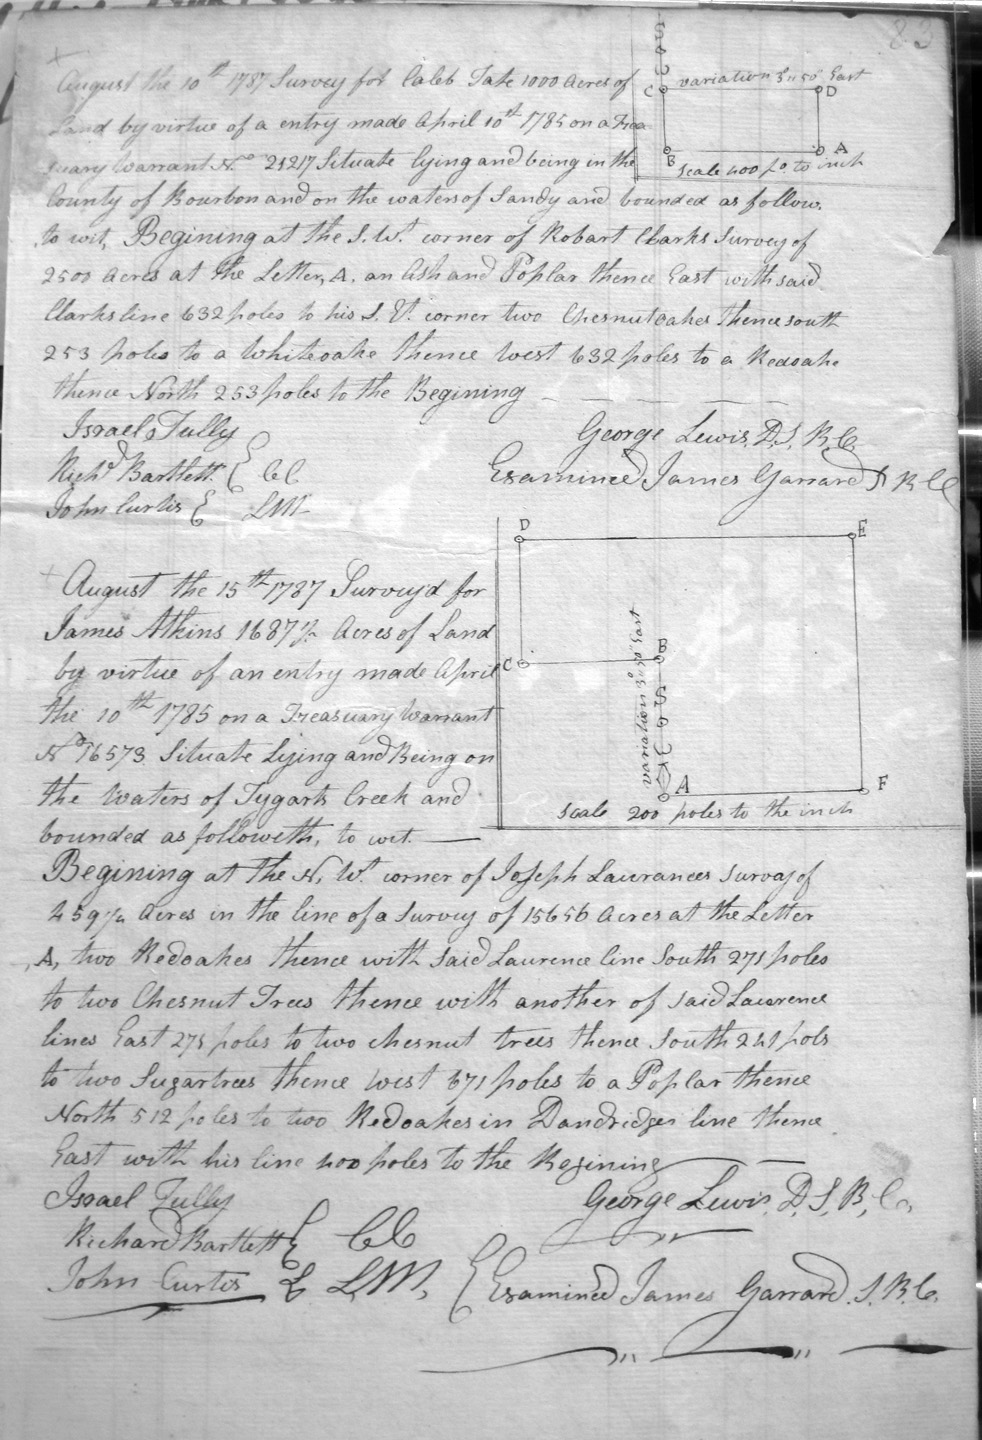 83
August the 10th 1787 Survey for Caleb Tate 1000 Acres of
Land by virtue of a entry made April 10th 1785 on a Trea
suary Warrant No 21217 Situate lying and being in the
County of Bourbon and on the waters of Sandy and bounded as follow.
to wit, Begining at the S. Wt. corner of Robart Clarks Survey of
2500 Acres at the Letter, A. an Ash and Poplar thence East with said
Clarks line 632 poles to his S. Et. corner two Chesnutoakes thence south
253 poles to a Whiteoake thence West 632 poles to a Redoake
thence North 253 poles to the Begining
C variation 3° 50' East D
B A
Scale 400 po to inch
Israel Tully
Richd Bartlett CC
John Curtis LM
George Lewis. D. S. B. C.
Examined James Garrard S B C
August the 15th 1787 Survey'd for
James Atkins 1687½ Acres of Land
by virtue of an entry made April
the 10th 1785 on a Treasuary Warrant
No 16573 Situate Lijing and Being on
the Waters of Tygarts Creek and
bounded as followeth, to wit.
D E
C B
variation 3° 50' East
A F
Scale 200 poles to the inch
Begining at the N, Wt. corner of Joseph Lawrances survay of
459¼ Acres in the line of a Survey of 15656 Acres at the Letter
,A, two Redoakes thence with said Laurence line South 271 poles
to two Chesnut Trees thence with another of said Lawrence
lines East 271 poles to two chesnut trees thence South 241 pols
to two Sugartrees thence West 671 poles to a Poplar thence
North 512 poles to two Redoakes in Dandridges line thence
East with his line 400 poles to the Begining
Israel Tully
Richard Bartlett CC
John Curtis LM,
George Lewis. D, S, B, C,
Examined James Garrard. S. B. C.